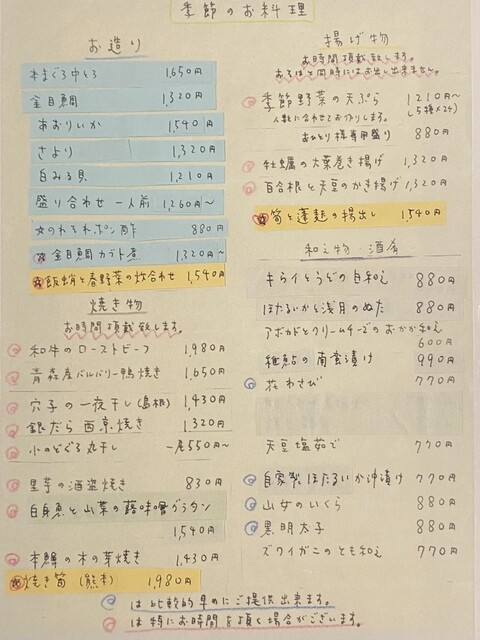 季節のお料理
お造り
本まぐろ中とろ 1,650円
金目鯛 1,320円
あおりいか 1,540円
さより 1,320円
白みる貝 1,210円
盛り合わせ 一人前 1,260円〜
のれそれポン酢 880円
金目鯛カブト煮 1,320円〜
飯蛸と春野菜の炊合わせ 1,540円
焼き物
お時間頂戴致します。
和牛のローストビーフ 1,980円
青森産バルバリー鴨焼き 1,650円
穴子の一夜干し(島根) 1,430円
銀だら西京焼き 1,320円
小のどぐろ丸干し 一尾550円〜
里芋の酒盗焼き 830円
白身魚と山菜の蕗味噌グラタン
1,540円
本鰆の木の芽焼き 1,430円
焼き筍(熊本) 1,980円
揚げ物
お時間頂戴致します。
おそばと同時にはお出し出来ません。
季節野菜の天ぷら 1,210円〜
人数に合わせてお作りします。 (5種×2ヶ)
おひとり様専用盛り 880円
牡蠣の大葉巻き揚げ 1,320円
百合根と天豆のかき揚げ 1,320円
筍と蓬麩の揚出し 1,540円
和え物・酒肴
キライとうどの白和え 880円
ほたるいかと浅月のぬた 880円
アボカドとクリームチーズのおかか和え
600円
稚鮎の南蛮漬け 990円
花わさび 770円
天豆塩茹で 770円
自家製ほたるいか沖漬け 770円
山女のいくら 880円
黒明太子 880円
ズワイガニのとも和え 770円
は比較的早めにご提供出来ます。
は特にお時間を頂く場合がございます。